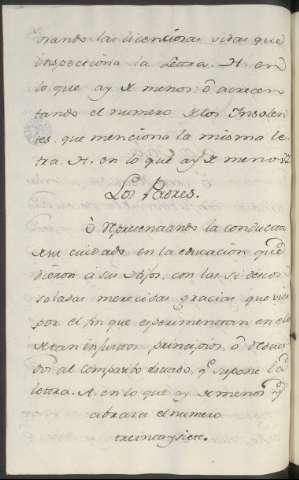 nando las licenciosas vidas que
inspecciona la Letra. A. en
lo que ay de menos. ô acrecen
tando el numero de los Insolen
tes. que menciona la misma le
tra. A. en lo que ay de menos.
Los Padres.
ô Representando la conducta
de su cuidado en la educacion que
dieron á sus Hijos, con las
soladas merecidas gracias que
por el fin que experimentan en el
de tan principios, ô
al deseado, q.e supone la
letra. A. en lo que ay de menos q.e
abraza el numero
treinta y siete.